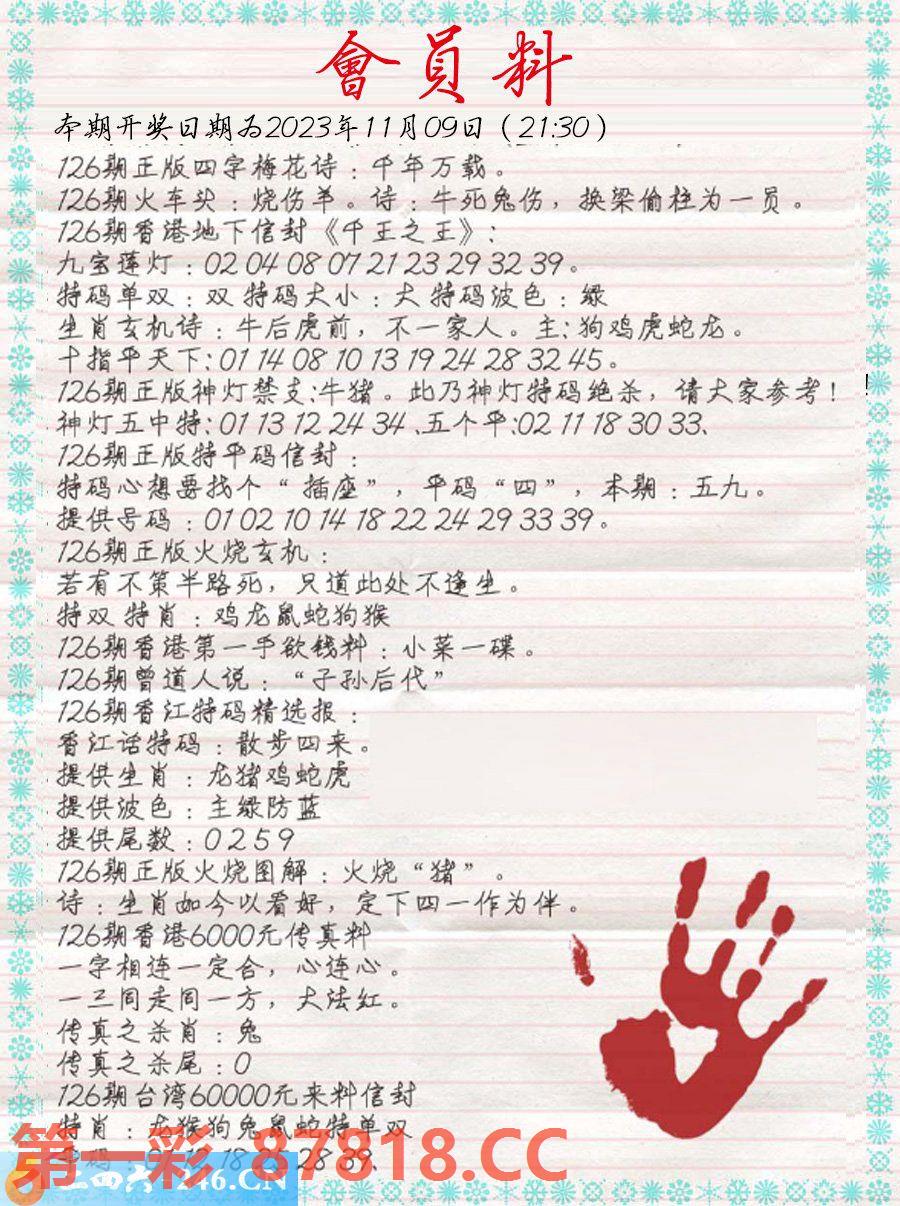 會員料
本期开奖日期为2023年11月09日（21:30）
126期正版四字梅花诗：千年万载。
126期火车头：烧伤羊。诗：牛死兔伤，换梁偷柱为一员。
126期香港地下信封《千王之王》：
九宝莲灯：02 04 08 07 21 23 29 32 39。
特码单双：双 特码大小：大 特码波色：绿
生肖玄机诗：牛后虎前，不一家人。主：狗鸡虎蛇龙。
十指平天下：01 14 08 10 13 19 24 28 32 45。
126期正版神灯禁支:牛猪。此乃神灯特码绝杀，请大家参考！!
神灯五中特：01 13 12 24 34 、五个平:02 11 18 30 33、
126期正版特平码信封：
特码心想要找个“插座”，平码“四”，本期：五九。
提供号码：01 02 10 14 18 22 24 29 33 39。
126期正版火烧玄机：
若有不策半路死，只道此处不逢生。
特双 特肖：鸡龙鼠蛇狗猴
126期香港第一手欲钱料：小菜一碟。
126期曾道人说：“子孙后代”
126期香江特码精选报：
香江话特码：散步四来。
提供生肖：龙猪鸡蛇虎
提供波色：主绿防蓝
提供尾数：0 2 5 9
126期正版火烧图解：火烧“猪”。
诗：生肖如今以看好，定下四一作为伴。
126期香港6000元传真料
一字相连一定合，心连心。
一三同走同一方，大法红。
传真之杀肖：兔
传真之杀尾：0
126期台湾60000元来料信封
特肖：龙猴狗兔鼠蛇特单双
18 25 28 39、
第一彩 87818.CC
246.CN